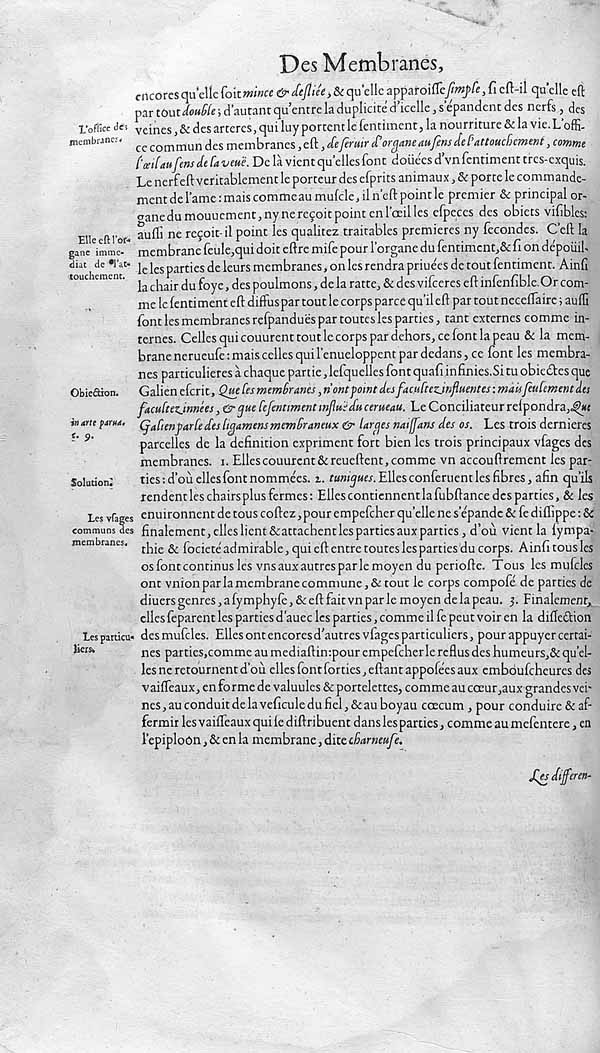 Des Membranes,
encores qu'elle soit mince & desliée, & qu'elle apparoisse simple, si est-il qu'elle est
par tout double; d'autant qu'entre la duplicité d'icelle, s'épandent des nerfs, des
L'office des
membranes.
veines, & des arteres, qui luy portent le sentiment, la nourriture & la vie. L'offi-
ce commun des membranes, est, de seruir d'organe au sens de l'attouchement, comme
l'œil au sens de la veuë. De là vient qu'elles sont doüées d'vn sentiment tres-exquis.
Le nerf est veritablement le porteur des esprits animaux, & porte le commande-
ment de l'ame: mais comme au muscle, il n'est point le premier & principal or-
gane du mouuement, ny ne reçoit point en l'œil les especes des obiets visibles:
Elle est l'or-
gane imme-
diat de l'at-
touchement.
aussi ne reçoit-il point les qualitez traitables premieres ny secondes. C'est la
membrane seule, qui doit estre mise pour l'organe du sentiment, & si on dépoüil-
le les parties de leurs membranes, on les rendra priuées de tout sentiment. Ainsi
la chair du foye, des poulmons, de la ratte, & des visceres est insensible. Or com-
me le sentiment est diffus par tout le corps parce qu'il est par tout necessaire; aussi
sont les membranes respanduës par toutes les parties, tant externes comme in-
ternes. Celles qui couurent tout le corps par dehors, ce sont la peau & la mem-
brane nerueuse: mais celles qui l'enueloppent par dedans, ce sont les membra-
nes particulieres à chaque partie, lesquelles sont quasi infinies. Si tu obiectes que
Obiection.
Galien escrit, Que les membranes, n'ont point des facultez influentes: mais seulement des
facultez innées, & que le sentiment influë du cerueau. Le Conciliateur respondra, Que
in arte parua.
c. 9.
Galien parle des ligamens membraneux & larges naissans des os. Les trois dernieres
parcelles de la definition expriment fort bien les trois principaux vsages des
membranes. 1. Elles couurent & reuestent, comme vn accoustrement les par-
Solution.
ties: d'où elles sont nommées. 2. tuniques. Elles conseruent les fibres, afin qu'ils
rendent les chairs plus fermes: Elles contiennent la substance des parties, & les
Les vsages
communs des
membranes.
enuironnent de tous costez, pour empescher qu'elle ne s'épande & se dissippe: &
finalement, elles lient & attachent les parties aux parties, d'où vient la sympa-
thie & societé admirable, qui est entre toutes les parties du corps. Ainsi tous les
os sont continus les vns aux autres par le moyen du perioste. Tous les muscles
ont vnion par la membrane commune, & tout le corps composé de parties de
diuers genres, a symphyse, & est fait vn par le moyen de la peau. 3. Finalement,
elles separent les parties d'auec les parties, comme il se peut voir en la dissection
Les particu-
liers.
des muscles. Elles ont encores d'autres vsages particuliers, pour appuyer certai-
nes parties, comme au mediastin: pour empescher le reflus des humeurs, & qu'el-
les ne retournent d'où elles sont sorties, estant apposées aux embouscheures des
vaisseaux, en forme de valuules & portelettes, comme au cœur, aux grandes vei-
nes, au conduit de la vesicule du fiel, & au boyau cœcum, pour conduire & af-
fermir les vaisseaux qui se distribuent dans les parties, comme au mesentere, en
l'epiploön, & en la membrane, dite charneuse.
Les differen-